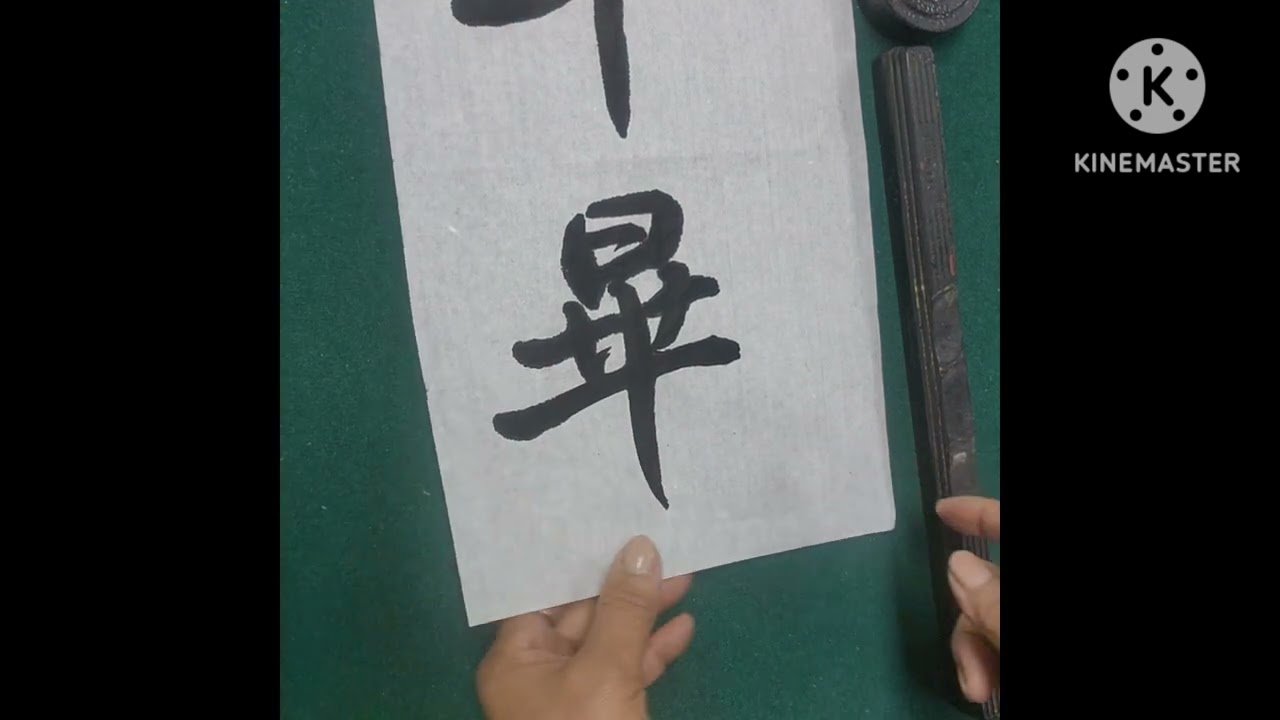 畢
K
KINEMASTER